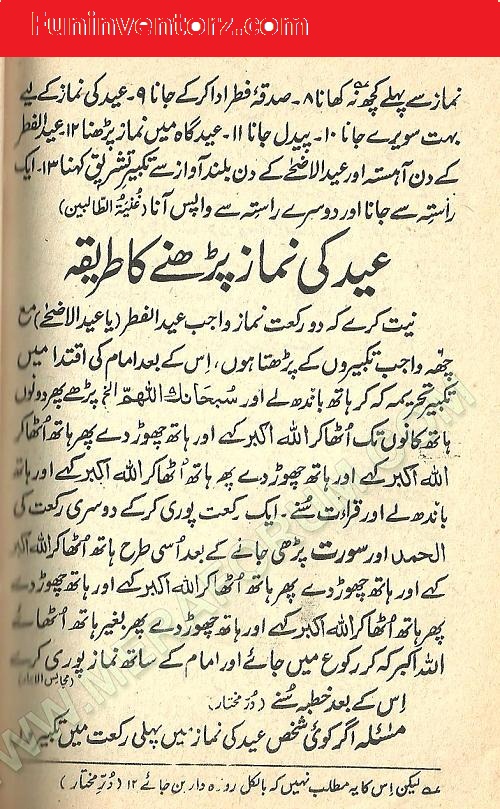 Funinventorz.com
نماز سے پہلے کچھ نہ کھانا ۸۔ صدقۂ فطر ادا کر کے جانا ۹۔ عید کی نماز کے لیے
بہت سویرے جانا ۱۰۔ پیدل جانا ۱۱۔ عیدگاہ میں نماز پڑھنا ۱۲۔ عید الفطر
کے دن آہستہ اور عید الاضحٰے کے دن بلند آواز سے تکبیر تشریق کہنا ۱۳۔ ایک
راستہ سے جانا اور دوسرے راستہ سے واپس آنا (غُنیۃُ الطّالبین)
عید کی نماز پڑھنے کا طریقہ
نیت کرے کہ دو رکعت نماز واجب عید الفطر (یا عید الاضحٰے) مع
چھّہ واجب تکبیروں کے پڑھتا ہوں، اِس کے بعد امام کی اقتدا میں
تکبیر تحریمہ کہہ کر ہاتھ باندھ لے اور سُبحَانَكَ اللّٰهُمَّ الخ پڑھے پھر دونوں
ہاتھ کانوں تک اُٹھا کر اللہ اکبر کہے اور ہاتھ چھوڑ دے پھر ہاتھ اُٹھا کر
اللہ اکبر کہے اور ہاتھ چھوڑ دے پھر ہاتھ اُٹھا کر اللہ اکبر کہے اور ہاتھ
باندھ لے اور قراءت سُنے۔ ایک رکعت پوری کر کے دوسری رکعت کی
الحمد اور سورت پڑھی جانے کے بعد اُسی طرح ہاتھ اُٹھا کر اللہ اکبر
کہے اور ہاتھ چھوڑ دے پھر ہاتھ اُٹھا کر اللہ اکبر کہے اور ہاتھ چھوڑ دے
پھر ہاتھ اُٹھا کر اللہ اکبر کہے اور ہاتھ چھوڑ دے پھر بغیر ہاتھ اُٹھائے
اللہ اکبر کہہ کر رکوع میں جائے اور امام کے ساتھ نماز پوری کرے (مجالس الابرار)
اِس کے بعد خطبہ سُنے (دُرّ مختار)
مسئلہ اگر کوئی شخص عید کی نماز میں پہلی رکعت میں تکبیروں
لیکن اِس کا یہ مطلب نہیں کہ بالکل روزہ دار بن جائے ۱۲ (دُرّ مختار)